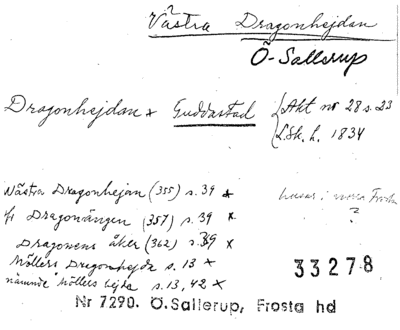 Västra Dragonhejdan
Ö-Sallerup
Dragonhejdan x Guddastad {Akt nr 28 s. 23
{L.Sk. h. 1834
Västra Dragonhejan (355) s. 39 x
Dragonängen (357) s. 39 x
Dragonens åker (362) s. 39 x
Möllers Dragonhejda s. 13 x
nämnde Möllers hejda s. 13, 42 x
husar i norra Frosta
?
33278
Nr 7290. Ö.Sallerup, Frosta hd